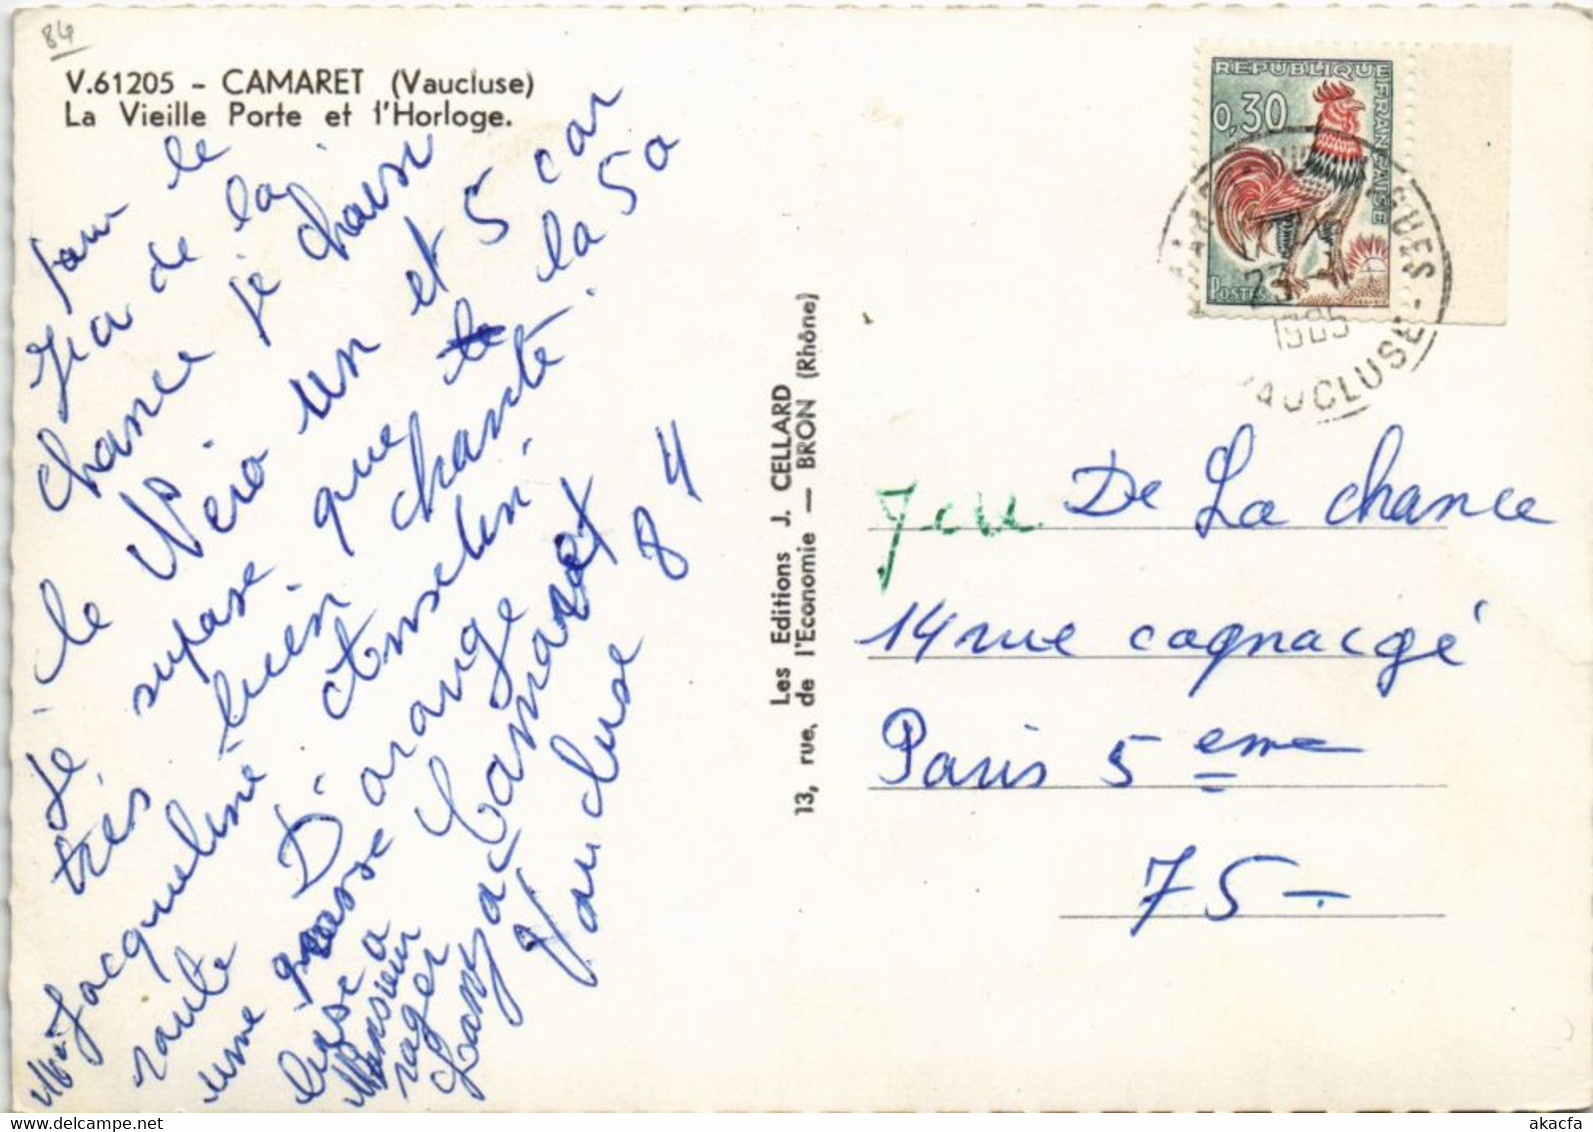 84
V.61205 - CAMARET (Vaucluse)
La Vieille Porte et l'Horloge.
pour le
Jeu de la
chance je choisi
le Néro un et 5 car
Je supose que le la 50
très bien chanté.
Me Jacqueline Anselin.
route D'orange
une grosse
bise a
Monsieur
roger
Lanzac
Camaret
Vaucluse
84
Les Editions J. CELLARD
13, rue, de l'Economie — BRON (Rhône)
REPUBLIQUE FRANÇAISE
0,30
POSTES
VAUCLUSE
Jeu De La chance
14 rue cognacgé
Paris 5 eme
75-
akacfa